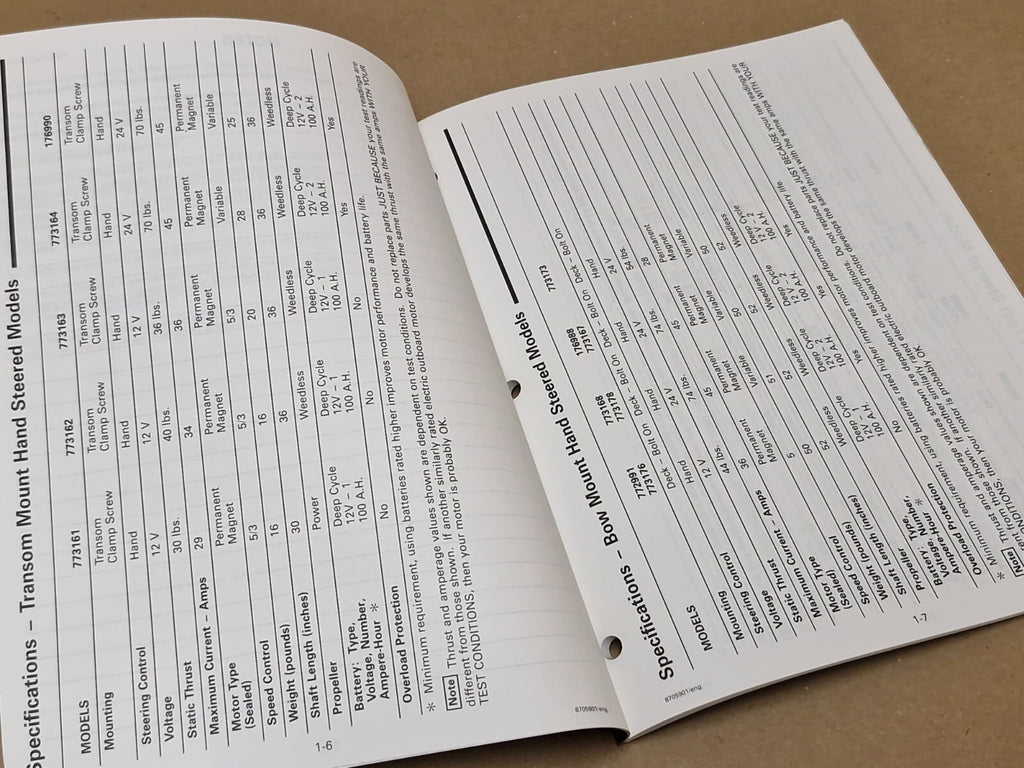 Specifications – Transom Mount Hand Steered Models
MODELS 773161 773162 773163 773164 176990
Mounting Transom Transom Transom Transom Transom
Clamp Screw Clamp Screw Clamp Screw Clamp Screw Clamp Screw
Steering Control Hand Hand Hand Hand Hand
Voltage 12 V 12 V 12 V 24 V 24 V
Static Thrust 30 lbs. 40 lbs. 36 lbs. 70 lbs. 70 lbs.
Maximum Current – Amps 29 34 36 45 45
Motor Type Permanent Permanent Permanent Permanent Permanent
(Sealed) Magnet Magnet Magnet Magnet Magnet
Speed Control 5/3 5/3 5/3 Variable Variable
Weight (pounds) 16 16 20 28 25
Shaft Length (inches) 30 36 36 36 36
Propeller Power Weedless Weedless Weedless Weedless
Battery: Type, Deep Cycle Deep Cycle Deep Cycle Deep Cycle Deep Cycle
Voltage, Number, 12V – 1 12V – 1 12V – 1 12V – 2 12V – 2
Ampere-Hour * 100 A.H. 100 A.H. 100 A.H. 100 A.H. 100 A.H.
Overload Protection No No No Yes Yes
* Minimum requirement, using batteries rated higher improves motor performance and battery life.
Note Thrust and amperage values shown are dependent on test conditions. Do not replace parts JUST BECAUSE your test readings are
different from those shown. If another similarly rated electric outboard motor develops the same thrust with the same amps WITH YOUR
TEST CONDITIONS, then your motor is probably OK.
1-6
8705901/eng
Specifications – Bow Mount Hand Steered Models
772991 773168 176988
MODELS 773176 773178 773167 77173
Mounting Deck – Bolt On Deck Bolt On Deck Bolt On Deck Bolt On
Steering Control Hand Hand Hand Hand
Voltage 12 V 24V 24V 24 V
Static Thrust 44 lbs. 74 lbs. 74 lbs. 54 lbs.
Maximum Current Amps 36 45 45 28
Motor Type Permanent Permanent Permanent Permanent
(Sealed) Magnet Magnet Magnet Magnet
Speed Control 5 Variable Variable Variable
Weight (pounds) 50 51 50 50
Shaft Length (inches) 52 52 52 52
Propeller Weedless Weedless Weedless Weedless
Battery: Type, Deep Cycle Deep Cycle Deep Cycle Deep Cycle
Voltage, Number, 12V 1 12V 2 12V – 2 12 V 2
Ampere Hour * 100 A.H. 100 A.H. 100 A.H. 100 A.H.
Overload Protection No Yes Yes Yes
* Minimum requirement, using batteries rated higher improves motor performance and battery life.
Note Thrust and amperage values shown are dependent on test conditions. Do not replace parts JUST BECAUSE your test readings are
ent from those shown. If another similarly rated electric outboard motor develops the same thrust with the same amps WITH YOUR
ONDITIONS, then your motor is probably OK.
1-7
8705901/eng